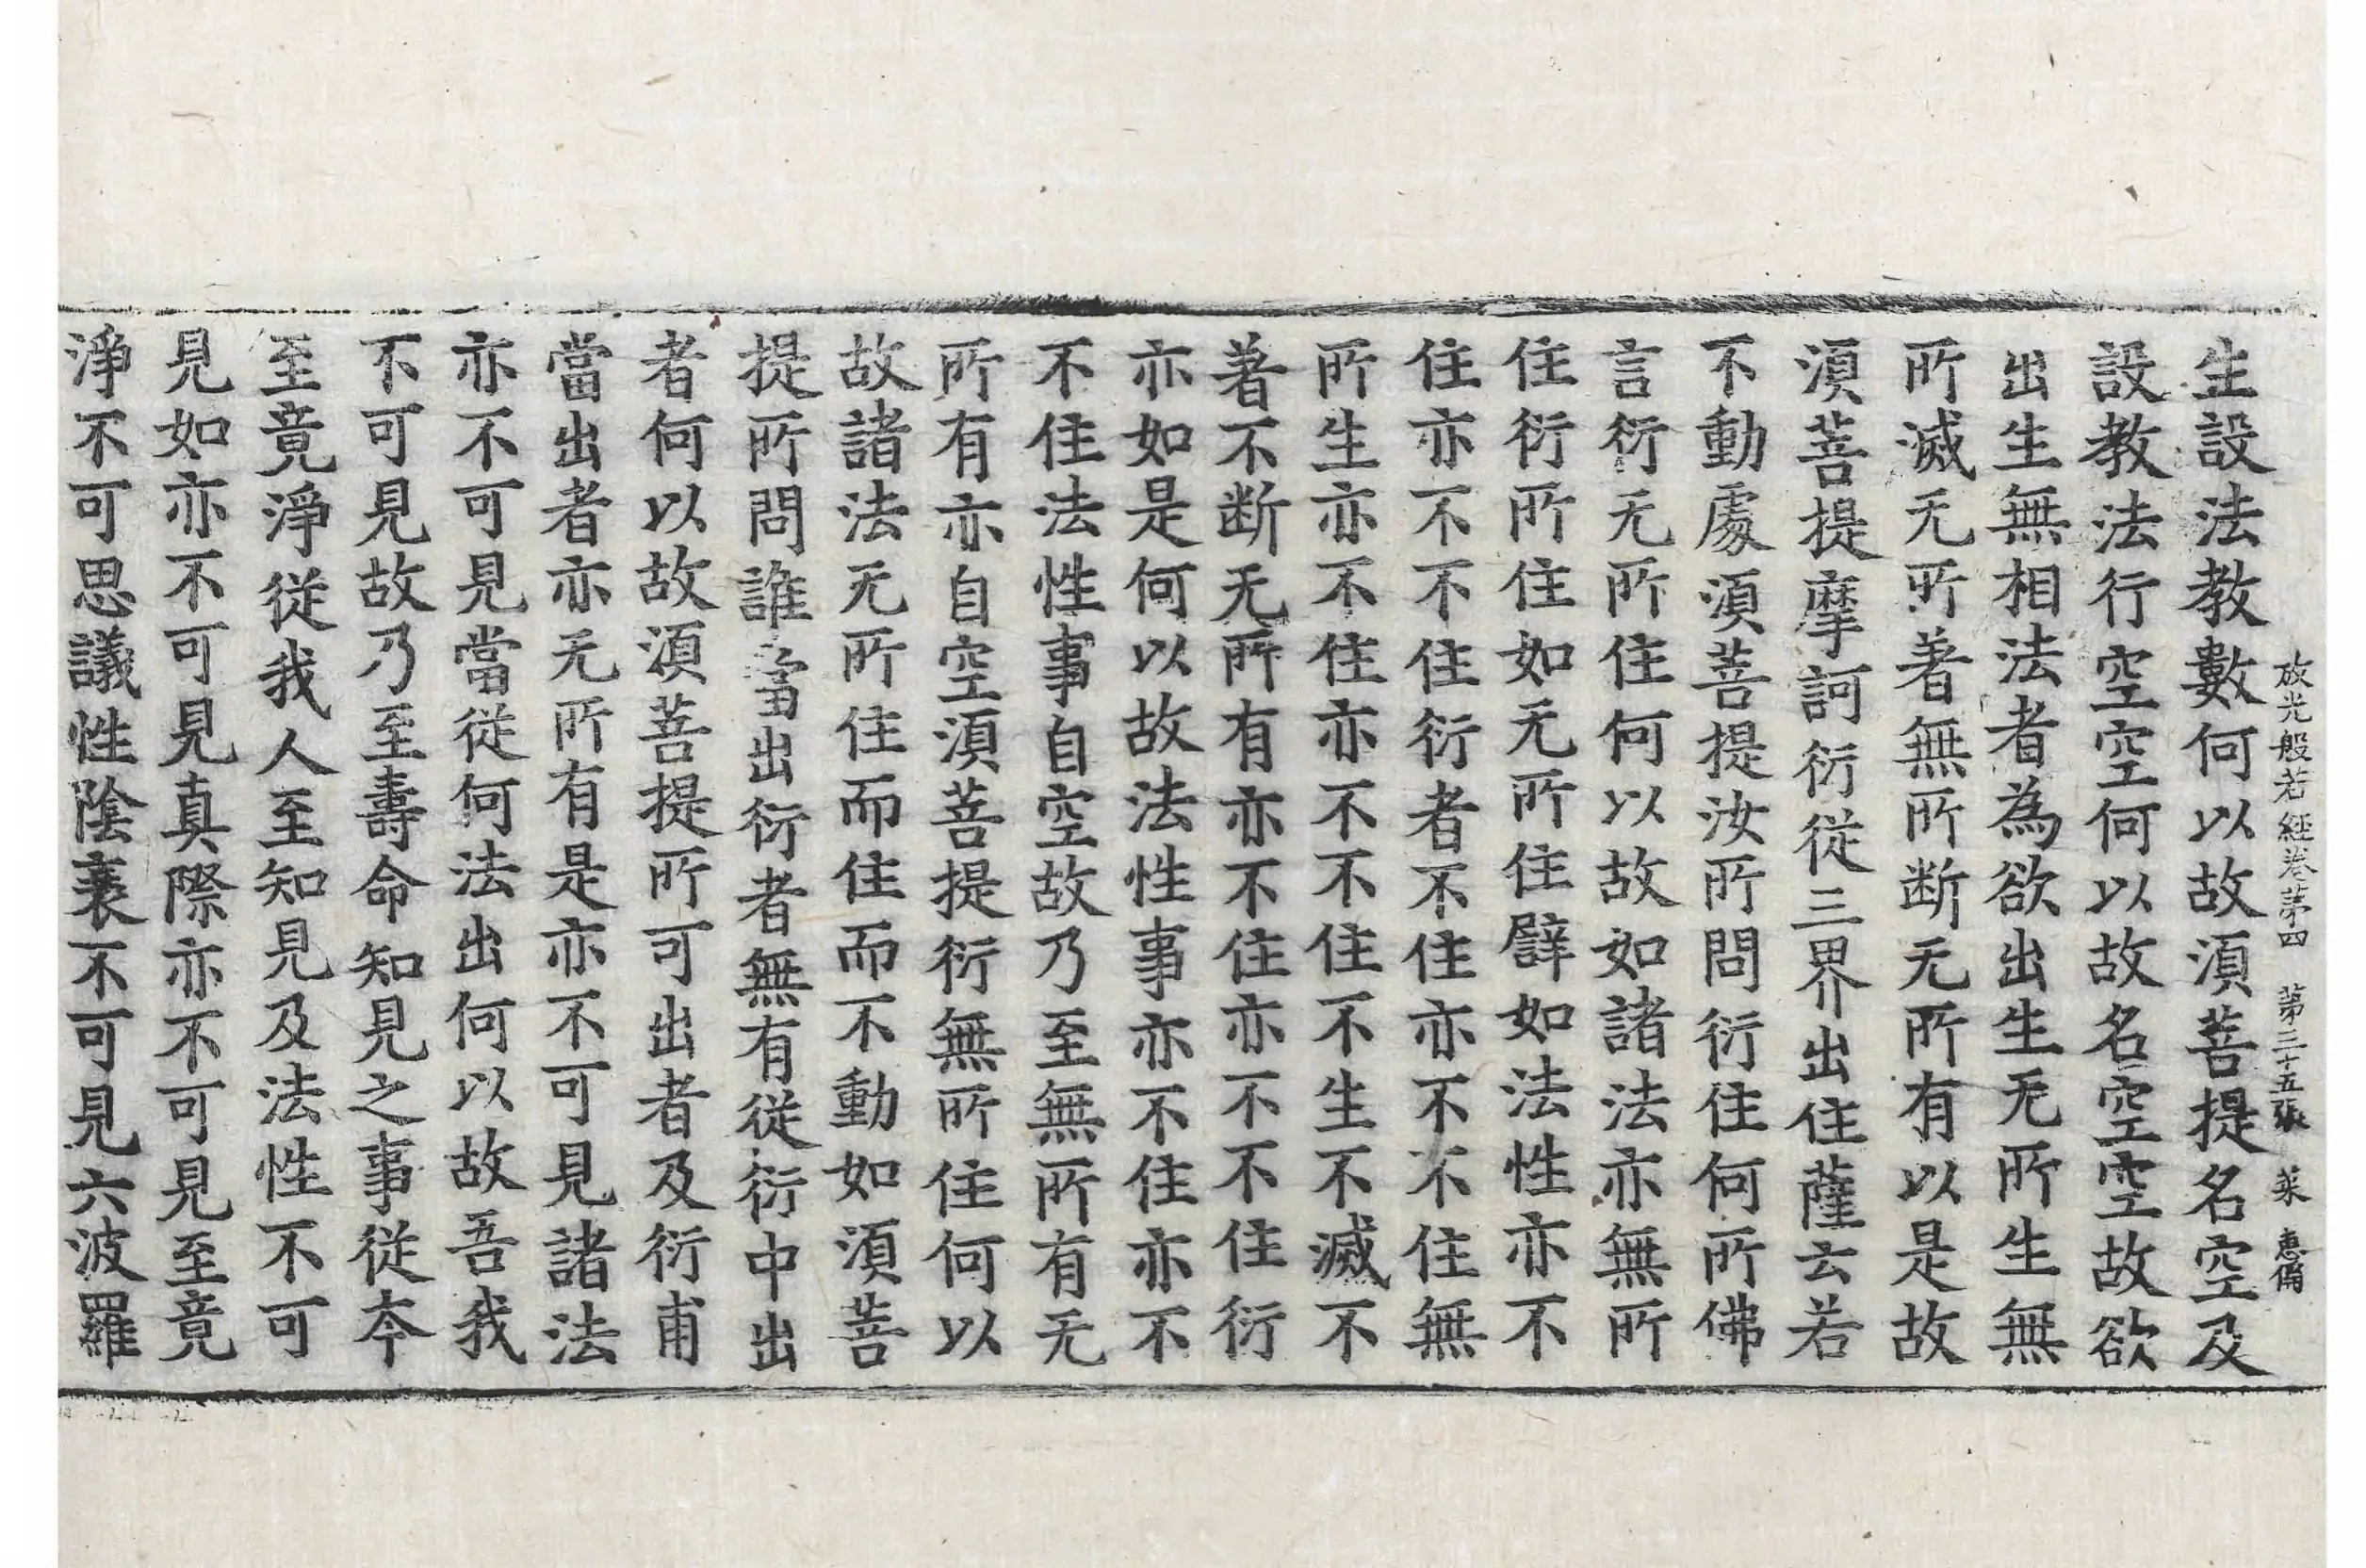 放光般若經卷第四　第三十五張　菜　惠脩
生設法教數何以故湏菩提名空及
設教法行空空何以故名空空故欲
出生無相法者為欲出生无所生無
所滅无所著無所断无所有以是故
湏菩提摩訶衍從三界出住薩云若
不動處湏菩提汝所問衍住何所佛
言衍无所住何以故如諸法亦無所
住衍所住如无所住譬如法性亦不
住亦不不住衍者不住亦不不住無
所生亦不住亦不不住不生不滅不
著不断无所有亦不住亦不不住衍
亦如是何以故法性事亦不住亦不
不住法性事自空故乃至無所有无
所有亦自空湏菩提衍無所住何以
故諸法无所住而住而不動如湏菩
提所問誰當出衍者無有從衍中出
者何以故湏菩提所可出者及衍甫
當出者亦无所有是亦不可見諸法
亦不可見當從何法出何以故吾我
不可見故乃至壽命知見之事從夲
至竟淨從我人至知見及法性不可
見如亦不可見真際亦不可見至竟
淨不可思議性陰衰不可見六波羅